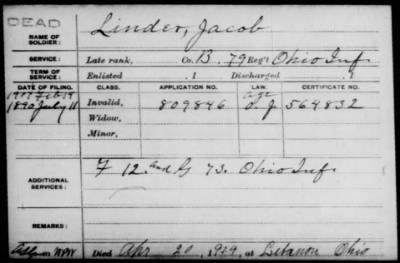 DEAD
NAME OF SOLDIER: Linder, Jacob
SERVICE: Late rank, Co. B. 79 Reg't Ohio Inf.
TERM OF SERVICE: Enlisted , 1 Discharged , 1
DATE OF FILING. CLASS. APPLICATION NO. LAW. CERTIFICATE NO.
Age
1890 July 11 Invalid, 809846 O. J 564832
Widow,
Minor,
ADDITIONAL SERVICES: F 12 and G 73. Ohio Inf.
REMARKS:
Died Apr 20, 1929, at Lebanon Ohio